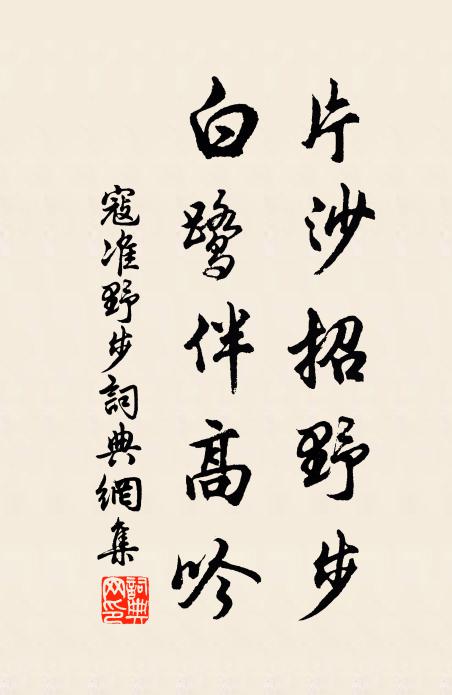 片沙招野步
白鹭伴高吟
寇准野步詞典網集
詞典网印